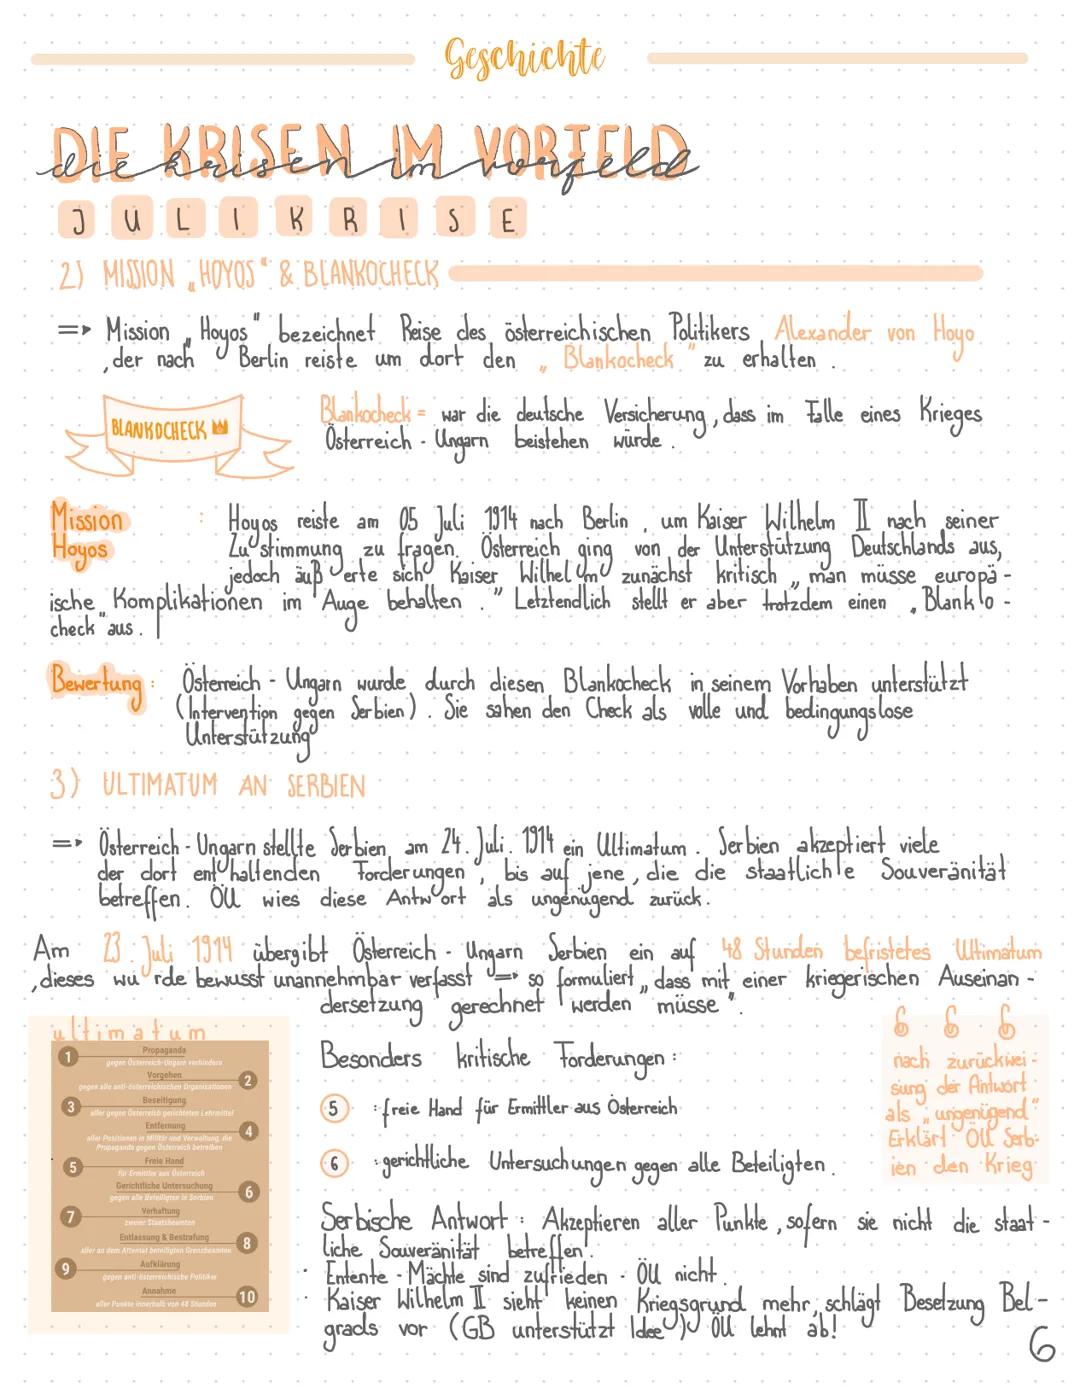 Geschichte
DIE KRISEN IM VORFELD
die krisen im vorfeld
JULIKRISE
2) MISSION „HOYOS" & BLANKOCHECK
=> Mission „Hoyos" bezeichnet Reise des österreichischen Politikers Alexander von Hoyo
, der nach Berlin reiste um dort den „Blankocheck" zu erhalten.
BLANKOCHECK
Blankocheck = war die deutsche Versicherung, dass im Falle eines Krieges
Österreich-Ungarn beistehen würde.
Mission
Hoyos
: Hoyos reiste am 05 Juli 1914 nach Berlin, um Kaiser Wilhelm II nach seiner
Zustimmung zu fragen. Österreich ging von der Unterstützung Deutschlands aus,
jedoch äußerte sich Kaiser Wilhelm zunächst kritisch „man müsse europä-
ische Komplikationen im Auge behalten." Letztendlich stellt er aber trotzdem einen „Blanko-
check" aus.
Bewertung: Österreich-Ungarn wurde durch diesen Blankocheck in seinem Vorhaben unterstützt
(Intervention gegen Serbien). Sie sahen den Check als volle und bedingungslose
Unterstützung
3) ULTIMATUM AN SERBIEN
=> Österreich-Ungarn stellte Serbien am 24. Juli. 1914 ein Ultimatum. Serbien akzeptiert viele
der dort enthaltenden Forderungen, bis auf jene, die die staatliche Souveränität
betreffen. ÖU wies diese Antwort als ungenügend zurück.
Am 23. Juli 1914 übergibt Österreich-Ungarn Serbien ein auf 48 Stunden befristetes Ultimatum
, dieses wurde bewusst unannehmbar verfasst => so formuliert „dass mit einer kriegerischen Auseinan-
dersetzung gerechnet werden müsse".
ultimatum
1 Propaganda
gegen Österreich-Ungarn verhindern
Vorgehen 2
gegen alle anti-österreichischen Organisationen
3 Beseitigung
aller gegen Österreich gerichteten Lehrmittel
Entfernung 4
aller Positionen in Militär und Verwaltung, die
Propaganda gegen Österreich betreiben
5 Freie Hand
für Ermittler aus Österreich
Gerichtliche Untersuchung 6
gegen alle Beteiligten in Serbien
7 Verhaftung
zweier Staatsbeamten
Entlassung & Bestrafung 8
aller an dem Attentat beteiligten Grenzbeamten
9 Aufklärung
gegen anti-österreichische Politiker
Annahme 10
aller Punkte innerhalb von 48 Stunden
Besonders kritische Forderungen:
5 : freie Hand für Ermittler aus Österreich
6 : gerichtliche Untersuchungen gegen alle Beteiligten.
nach zurückwei-
sung der Antwort
als „ungenügend"
Erklärt ÖU Serb-
ien den Krieg
Serbische Antwort: Akzeptieren aller Punkte, sofern sie nicht die staat-
liche Souveränität betreffen.
· Entente-Mächte sind zufrieden - ÖU nicht.
· Kaiser Wilhelm II sieht keinen Kriegsgrund mehr, schlägt Besetzung Bel-
grads vor (GB unterstützt Idee) ÖU lehnt ab!
6